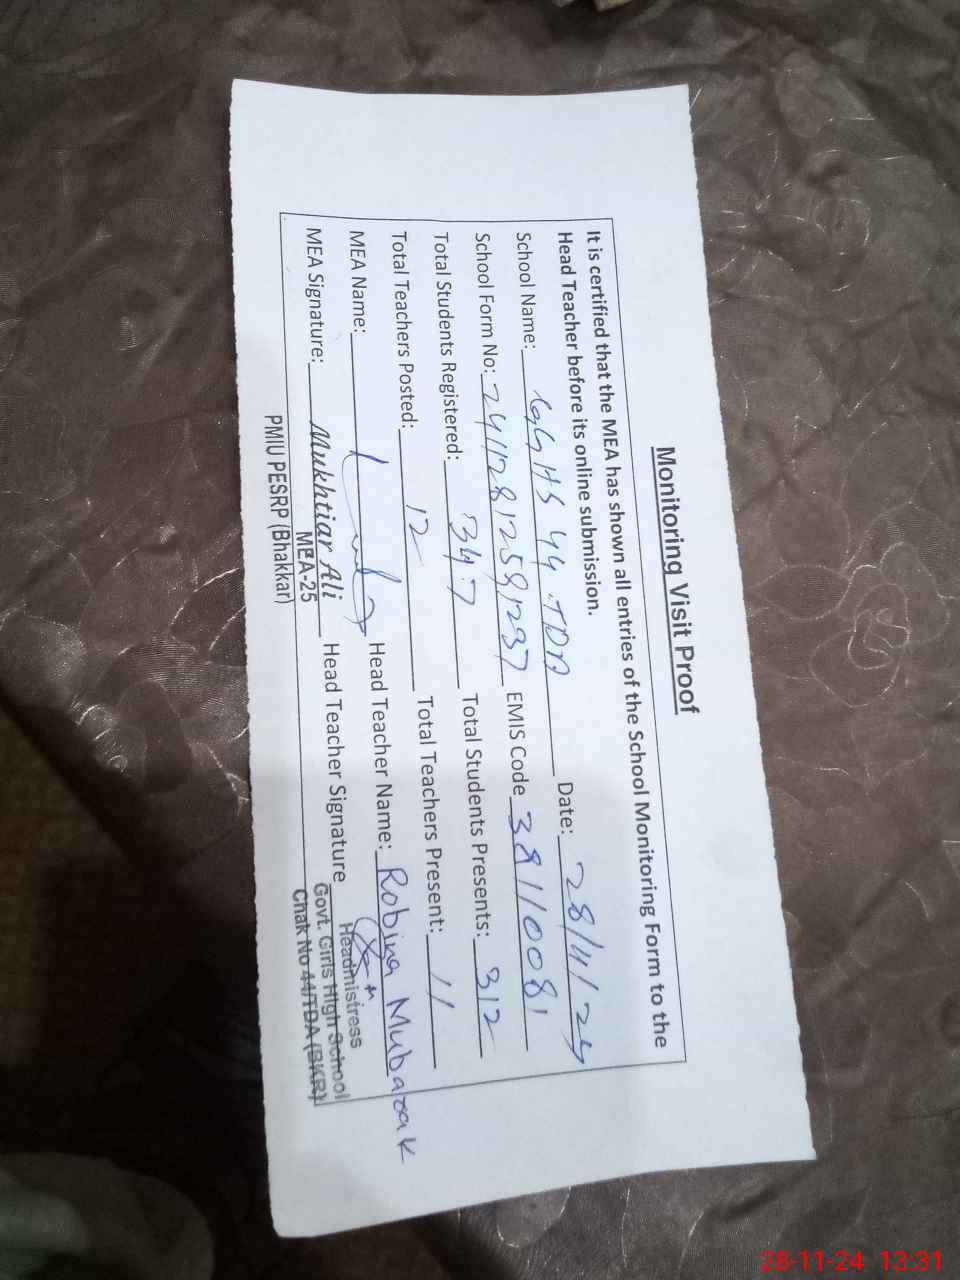 Monitoring Visit Proof
It is certified that the MEA has shown all entries of the School Monitoring Form to the
Head Teacher before its online submission.
School Name: GGHS 44.TDA Date: 28/11/24
School Form No: 24112812591237 EMIS Code 38110081
Total Students Registered: 347 Total Students Presents: 312
Total Teachers Posted: 12 Total Teachers Present: 11
MEA Name: Head Teacher Name: Robina Mubarak
MEA Signature: Mukhtiar Ali Head Teacher Signature
MEA-25
PMIU PESRP (Bhakkar)
Headmistress
Govt. Girls High School
Chak No 44/TDA (BKR)
28-11-24 13:31